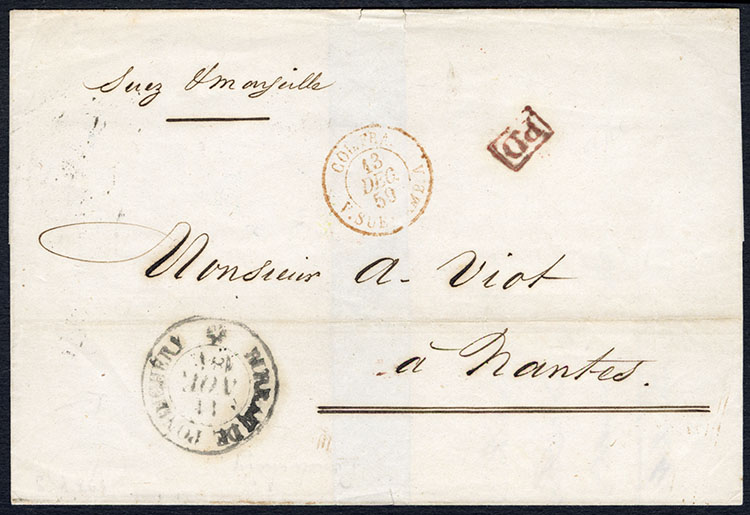 Suez & Marseille
PD
COL. FRA. V. SUEZ AMB.
13
DEC.
59
Monsieur A. Viot
à Nantes.
BUREAU DE PONDICHÉRY